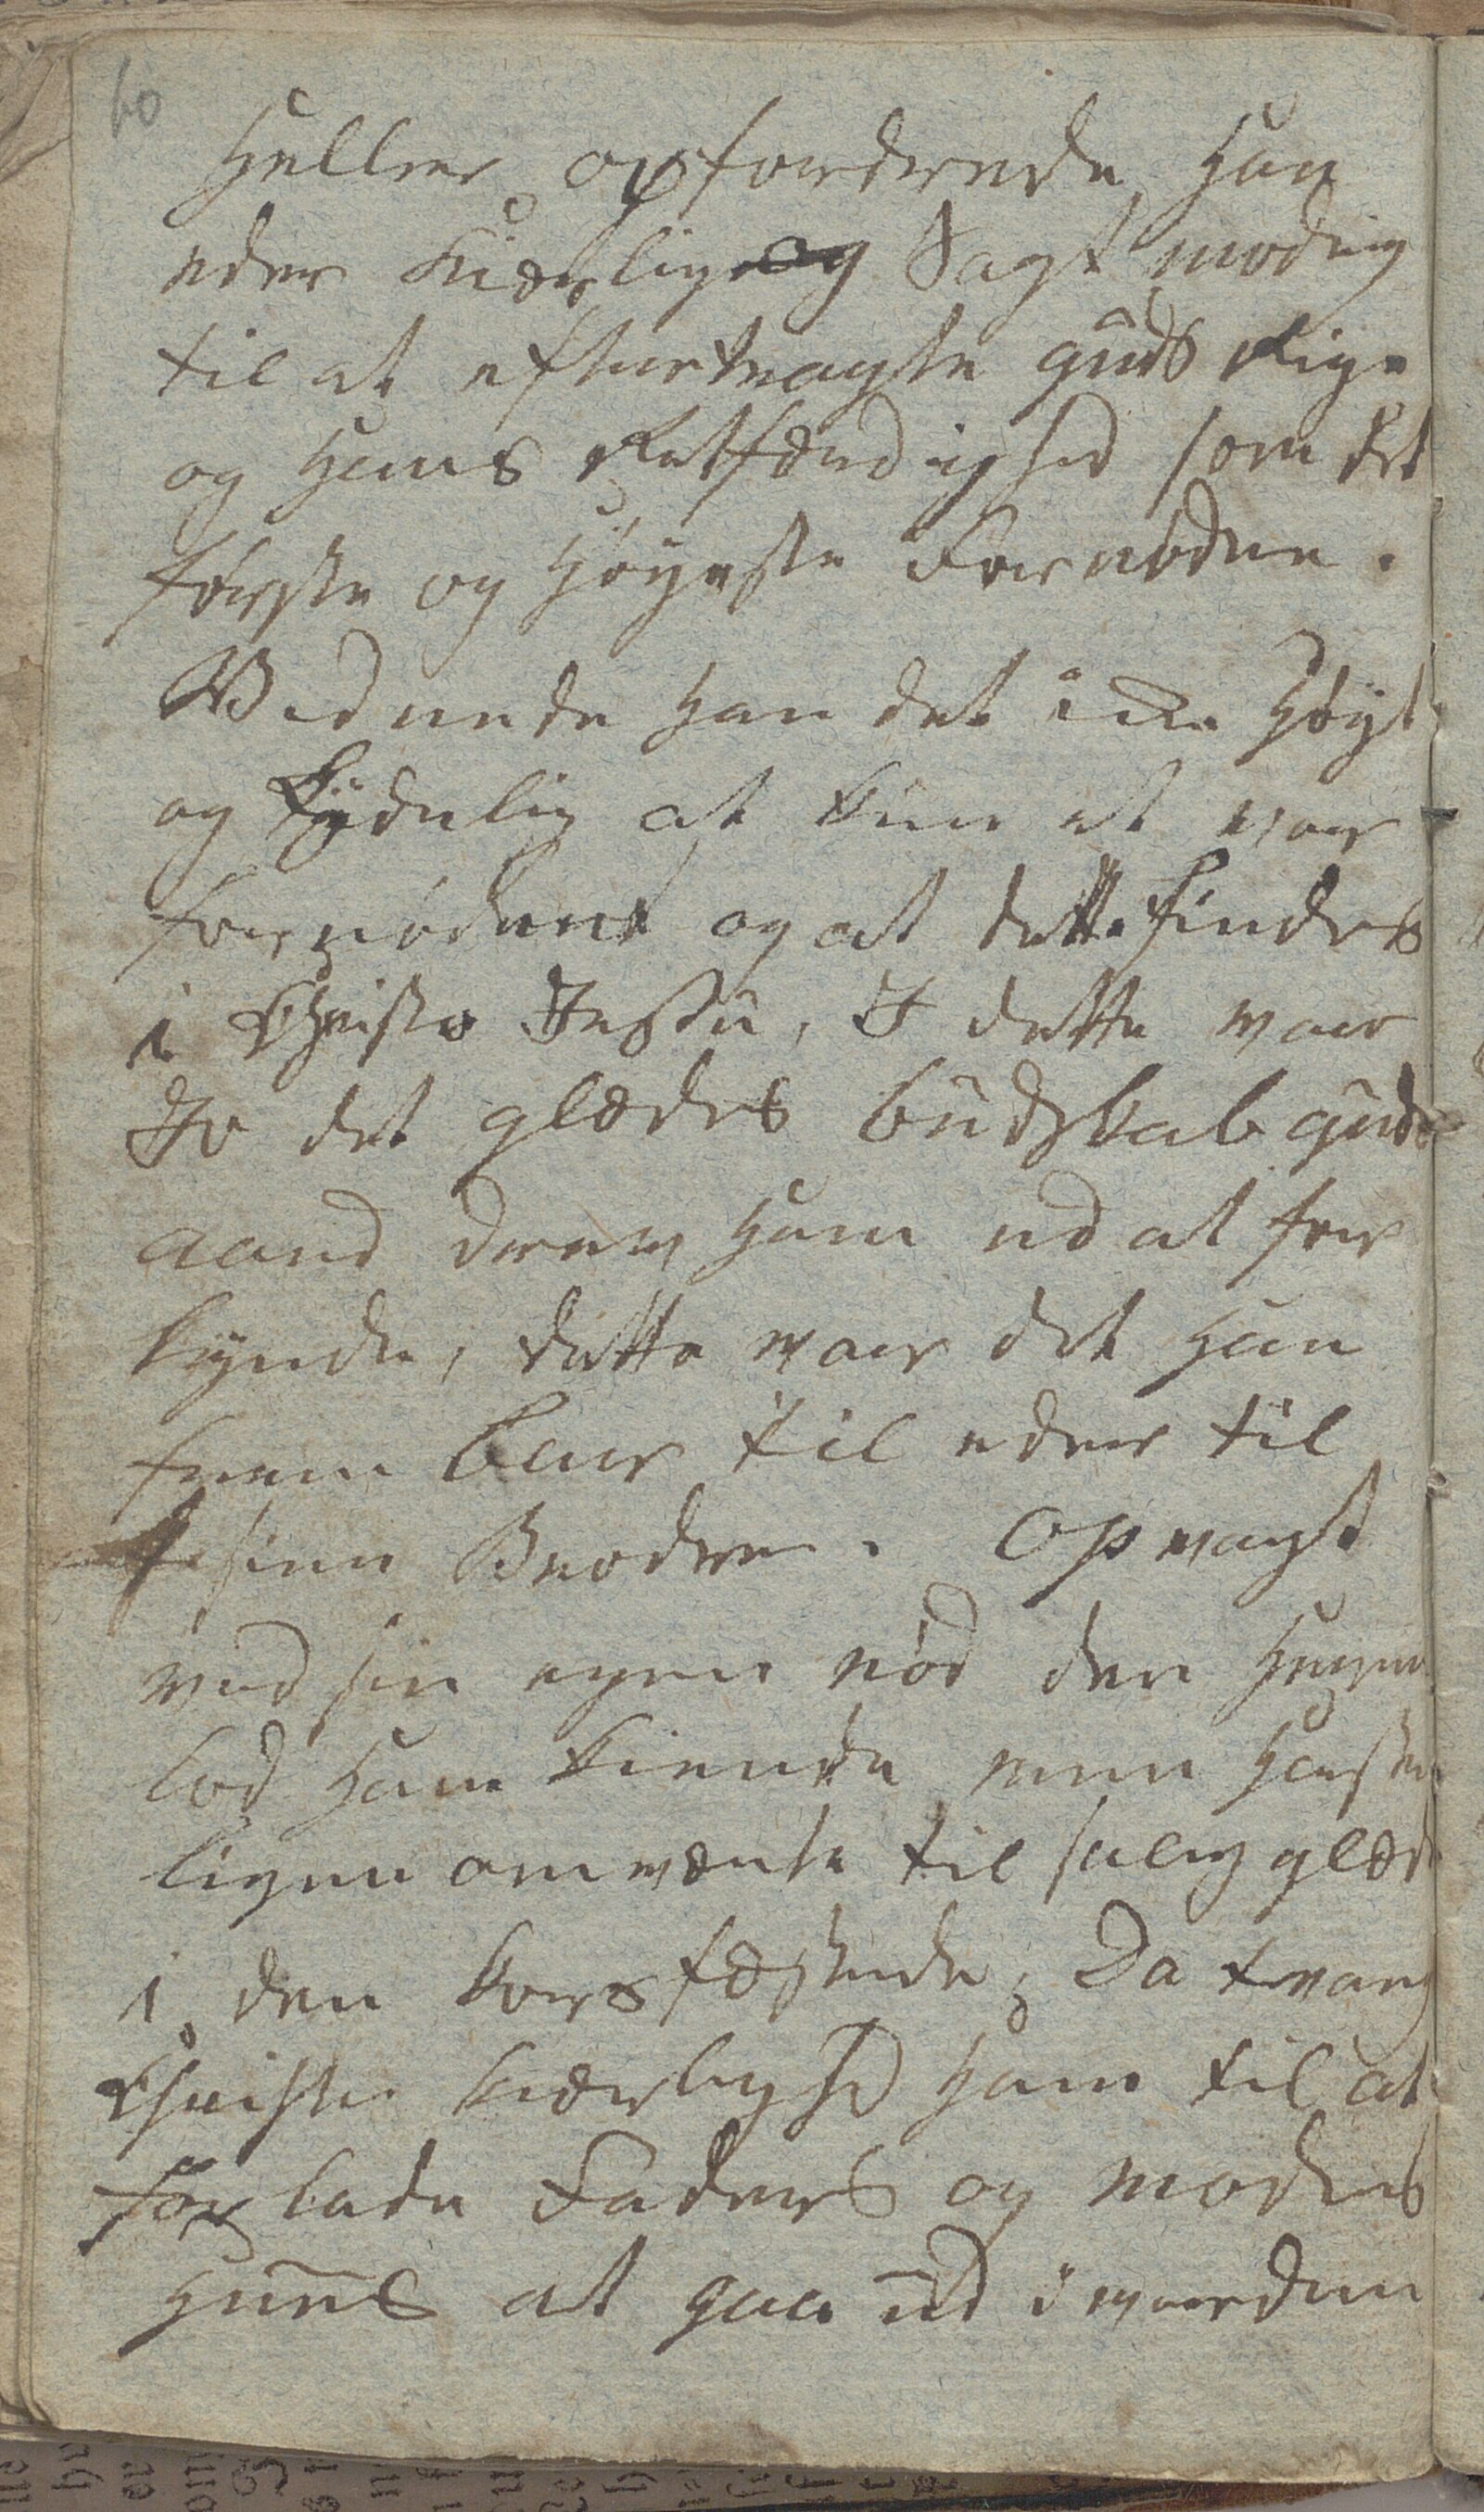 60
Heller opfordrede Han
eder Kierlig og Sagtmodig
til at eftertragte guds Rige
og Hans Retfærdighed som det
første og Høyeste Fornødne.
Vidnede Han det icke Høyt
og tydelig at kun et var
fornødent og at dette findes
i Christo Jesu, I dette var
Jo det glædes budskab guds
aand drev Ham ud at for
kynde, dette var det Han
frem bar til eder til
sine Brødre. Opvagt
ved sin egen nød den Herren
lod Ham kiende men Haste
ligen omvænte til salig glæde
i den korsfæstede, Da tvang
Christi kierlighed Ham til at
forlade Faders og moders
Huus at gaa ud i værden